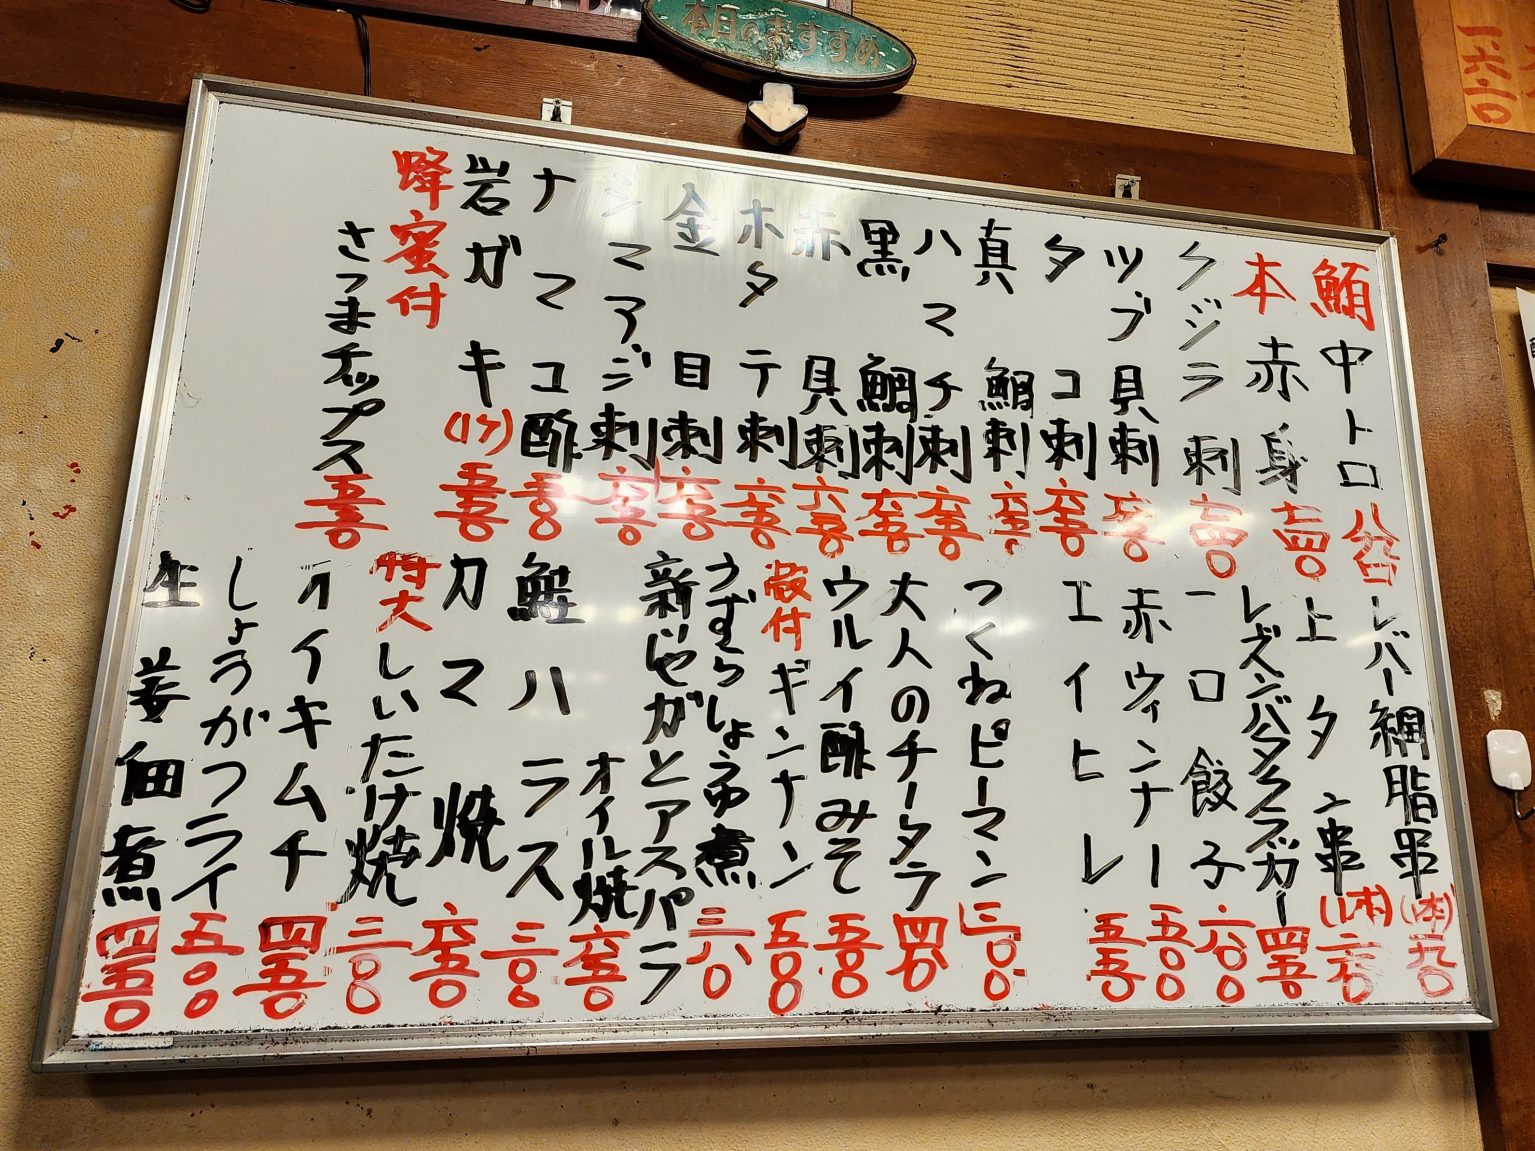 本日のおすすめ
一六〇
鮪中トロ 八八〇
本赤身 七四〇
クジラ刺 七四〇
ツブ貝刺 六五〇
タコ刺 六五〇
真鯛刺 六五〇
ハマチ刺 六五〇
黒鯛刺 六五〇
赤貝刺 六五〇
ホタテ刺 六五〇
金目刺 六五〇
シマアジ刺 六五〇
ナマコ酢 五五〇
岩ガキ(1ケ) 五五〇
蜂蜜付
さつまチップス 五五〇
レバー網脂串(1本) 一九〇
上タン串(1本) 二六〇
レーズンバタークラッカー 四五〇
一口餃子 六〇〇
赤ウィンナー 五〇〇
エイヒレ 五五〇
つくねピーマン 三〇〇
大人のチータラ 四五〇
ウルイ酢みそ 五五〇
殻付ギンナン 五〇〇
うずらしょうゆ煮 三八〇
新じゃがとアスパラ
オイル焼 六五〇
鮭ハラス 三五〇
カマ焼 六五〇
特大しいたけ焼 三八〇
オイキムチ 四五〇
しょうがフライ 五〇〇
生姜佃煮 四五〇